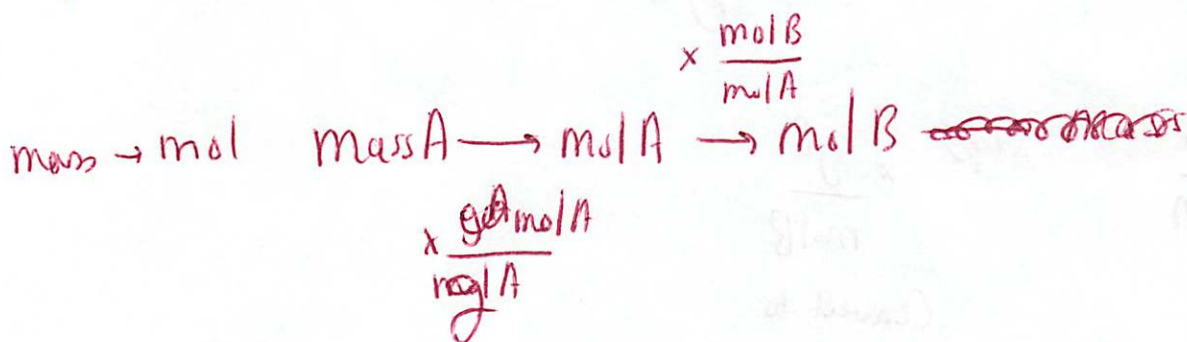 × mol B
mol A
mass → mol mass A → mol A → mol B
× mol A
g A